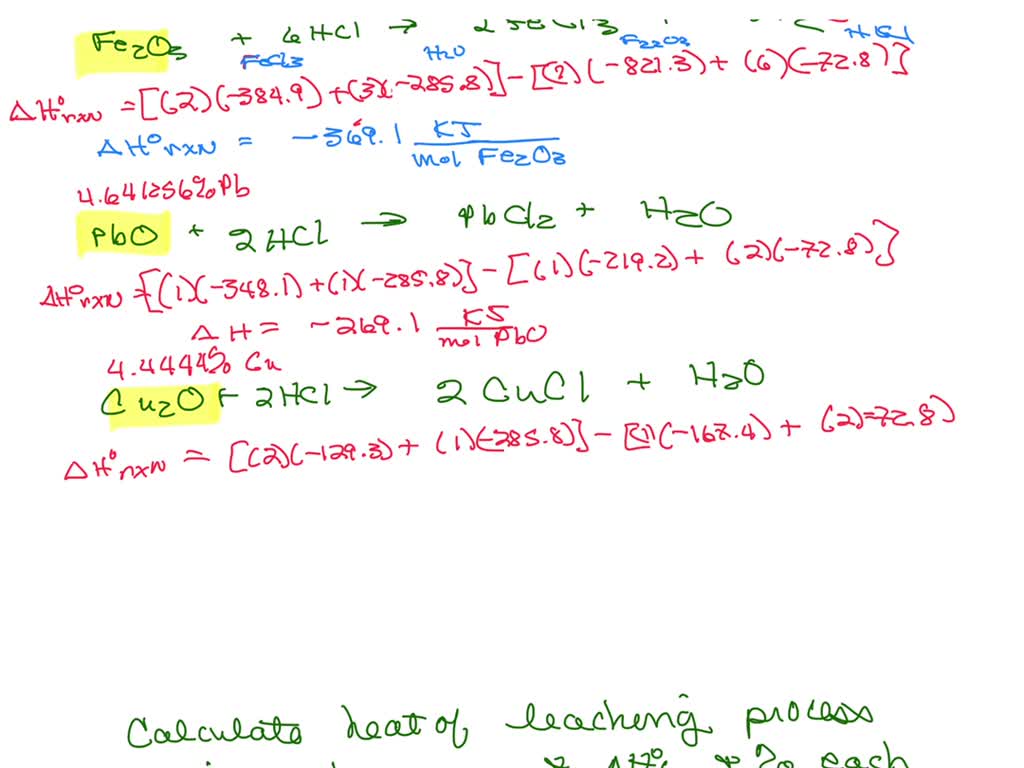 Fe2O3 + 6HCl → 2
FeCl3 H2O Fe2O3 HCl
ΔH°rxN = [(2)(-384.9) + (3)(-285.8)] - [(1)(-821.3) + (6)(-72.8)]
ΔH°rxN = -369.1 KJ/mol Fe2O3
4.641256% Pb
PbO + 2HCl → PbCl2 + H2O
ΔH°rxN = [(1)(-348.1) + (1)(-285.8)] - [(1)(-219.2) + (2)(-72.8)]
ΔH = -269.1 KJ/mol PbO
4.444% Cu
Cu2O + 2HCl → 2CuCl + H2O
ΔH°rxN = [(2)(-129.3) + (1)(-285.8)] - [(1)(-167.4) + (2)=72.8)
Calculate heat of leaching process
ΔH° % each